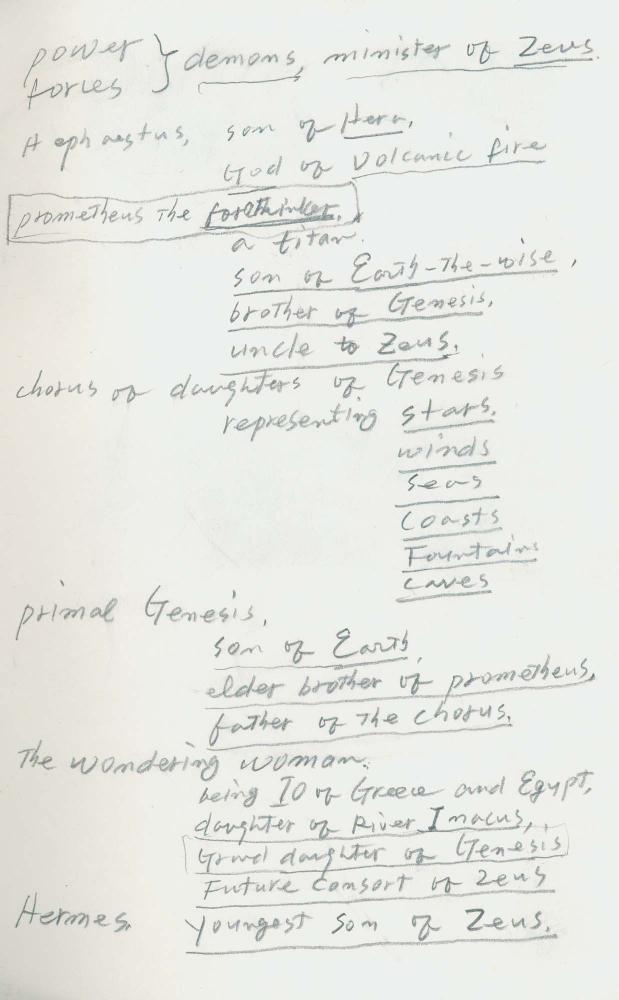 power
forces } demons, minister of Zeus
Hephaestus, son of Hera,
God of Volcanic fire
prometheus The forethinker,
a titan.
son of Earth-The-wise,
brother of Genesis,
uncle to Zeus.
chorus of daughters of Genesis
representing stars,
winds
seas
Coasts
Fountains
caves
primal Genesis,
son of Earth,
elder brother of prometheus,
father of The chorus.
The wondering woman.
being IO of Greece and Egypt,
daughter of River Imacus,
Grand daughter of Genesis
Future Consort of Zeus
Hermes, Youngest Son of Zeus.